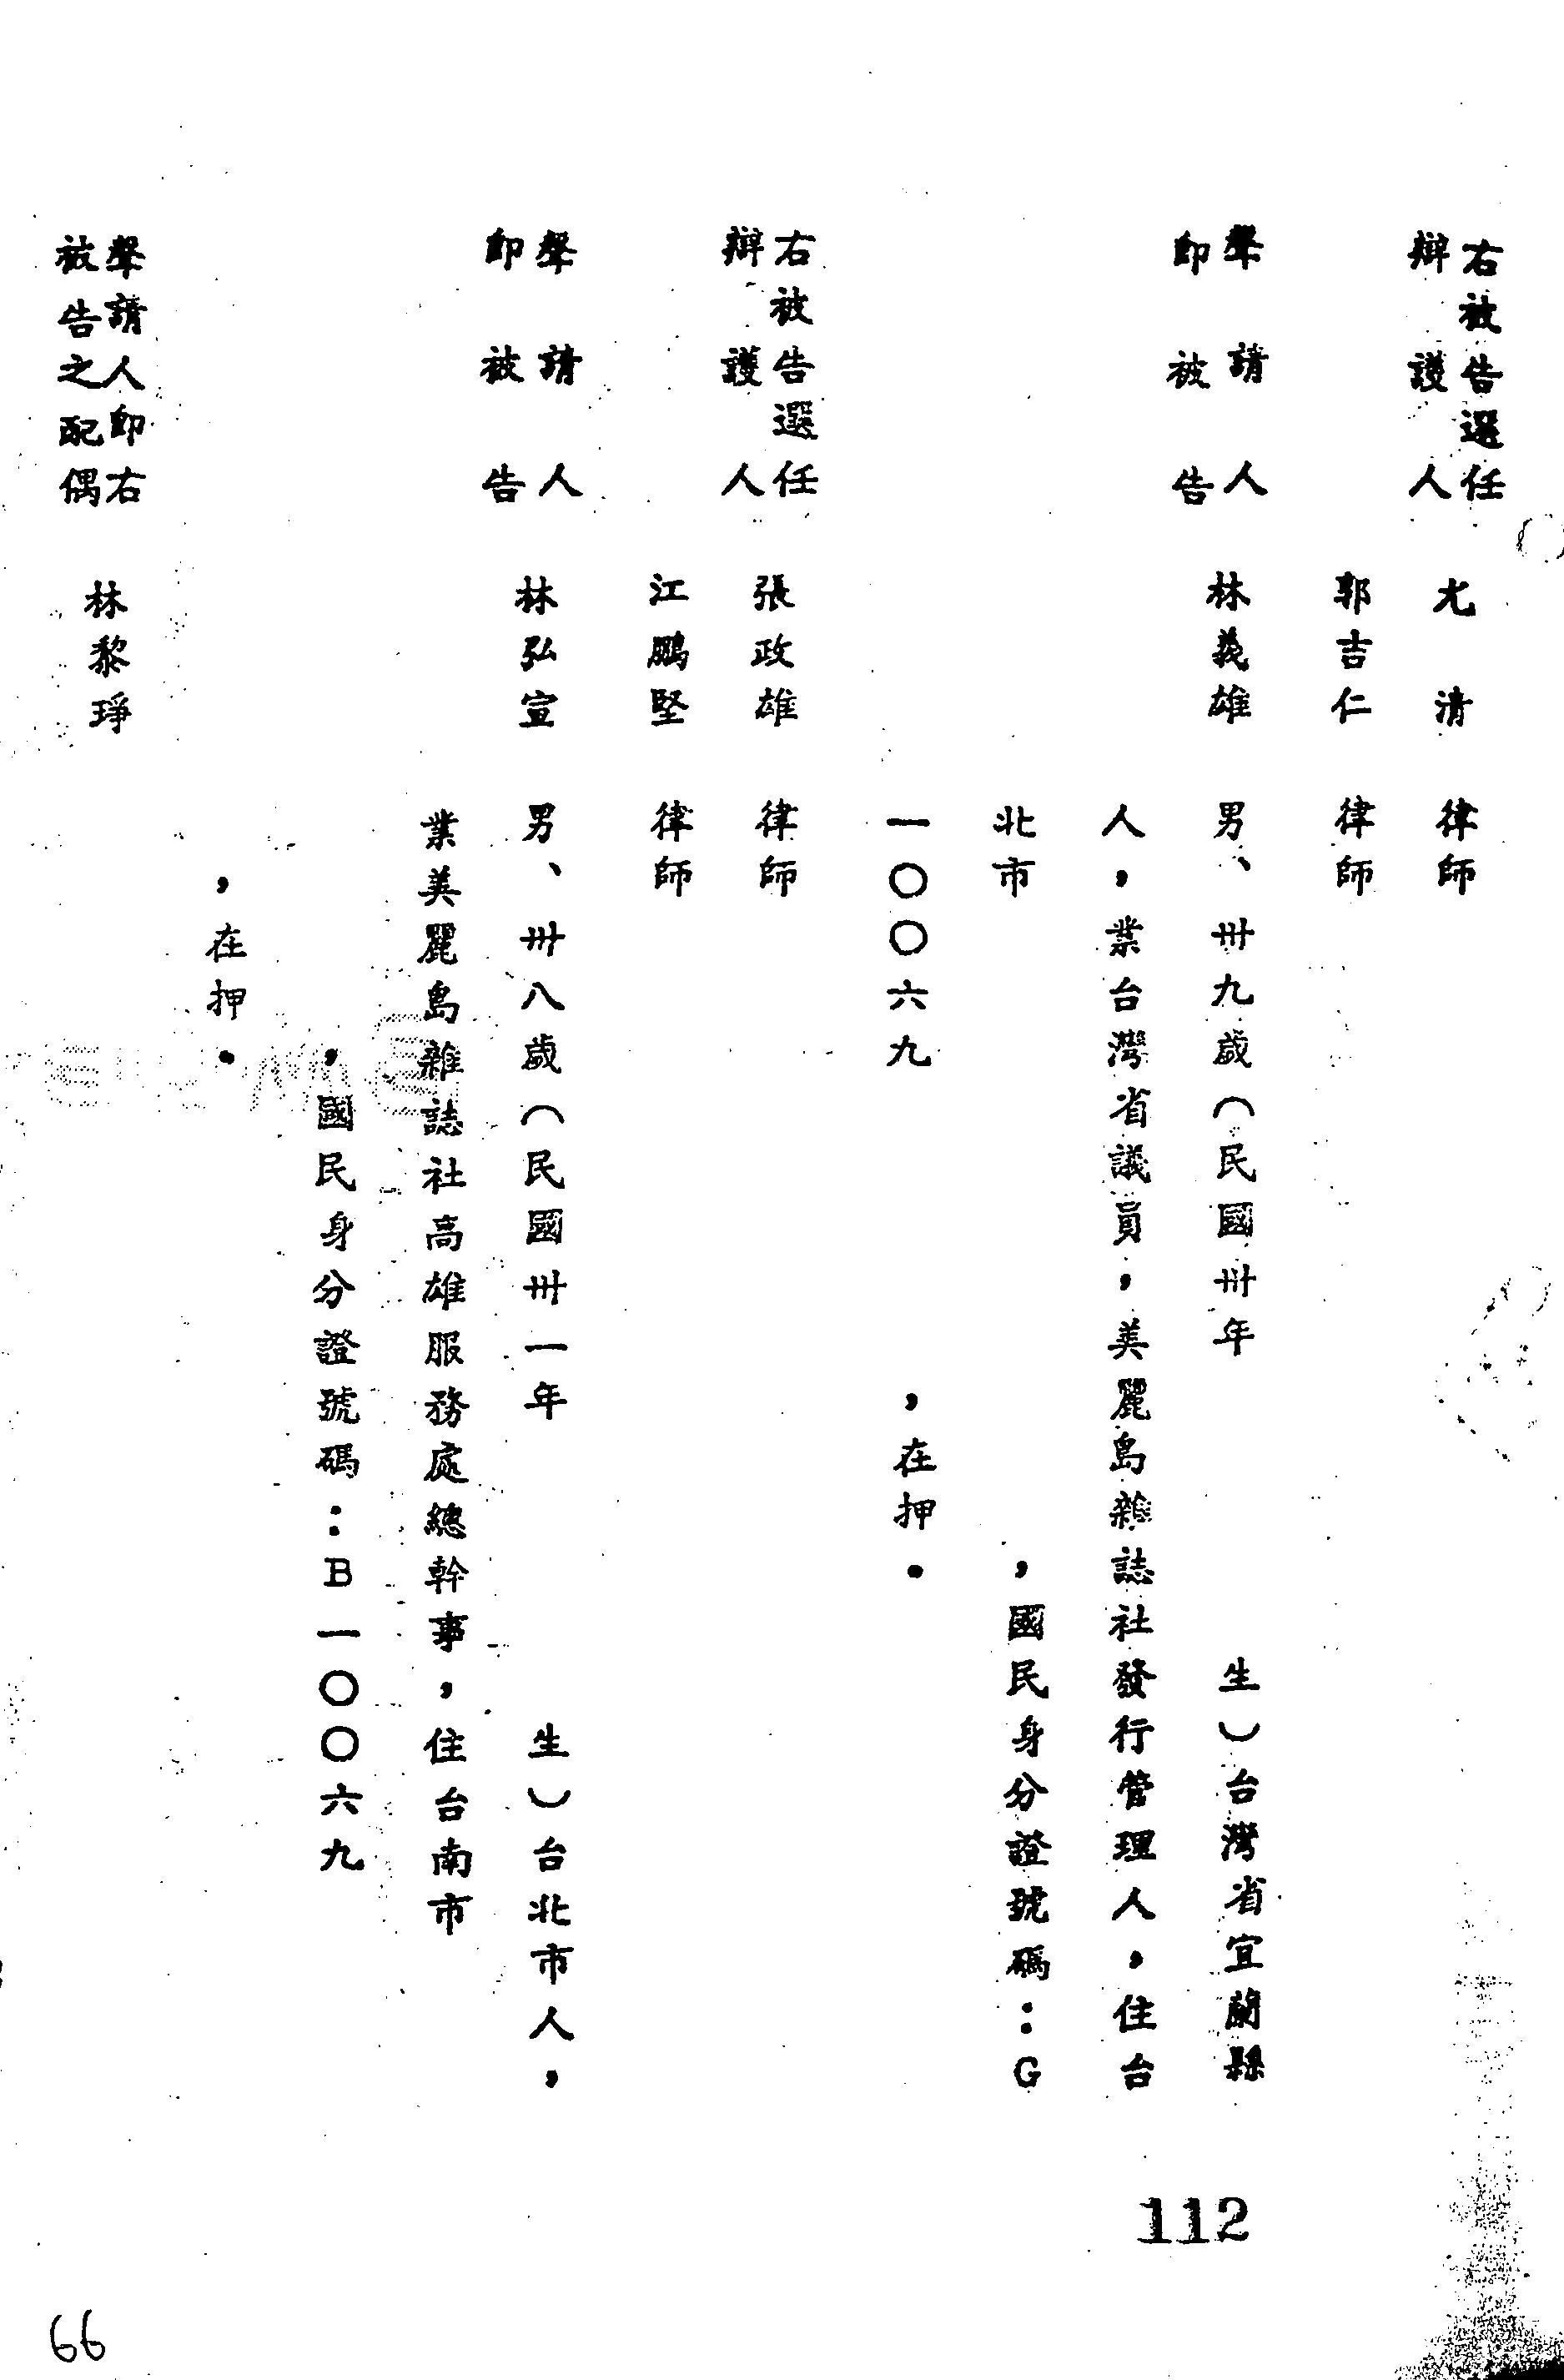 右被告選任
辯護人 尤清 律師
郭吉仁 律師
聲請人
即被告 林義雄 男、卅九歲(民國卅年 生)台灣省宜蘭縣
人,業台灣省議員,美麗島雜誌社發行管理人,住台
北市 ,國民身分證號碼:G
一〇〇六九 ,在押.
右被告選任
辯護人 張政雄 律師
江鵬堅 律師
聲請人
即被告 林弘宣 男、卅八歲(民國卅一年 生)台北市人,
業美麗島雜誌社高雄服務處總幹事,住台南市
,國民身分證號碼:B一〇〇六九
,在押.
聲請人即右
被告之配偶 林黎琤
112
66